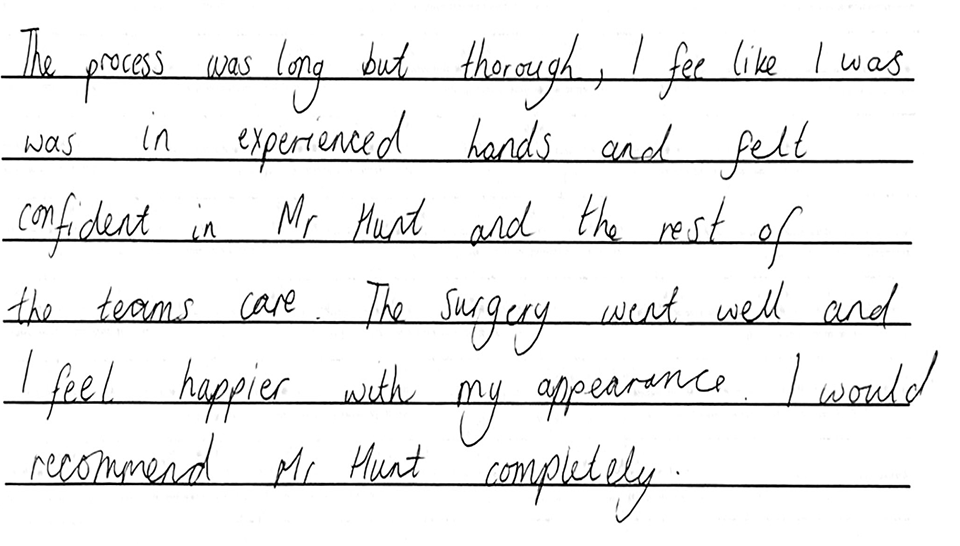 The process was long but thorough, I fee like I was
was in experienced hands and felt
confident in Mr Hunt and the rest of
the teams care. The surgery went well and
I feel happier with my appearance. I would
recommend Mr Hunt completely.